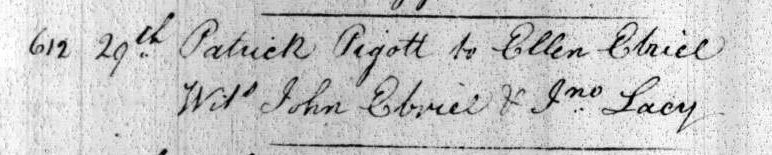 612 29th Patrick Pigott to Ellen Ebriel
Wits John Ebriel & Jno Lacy